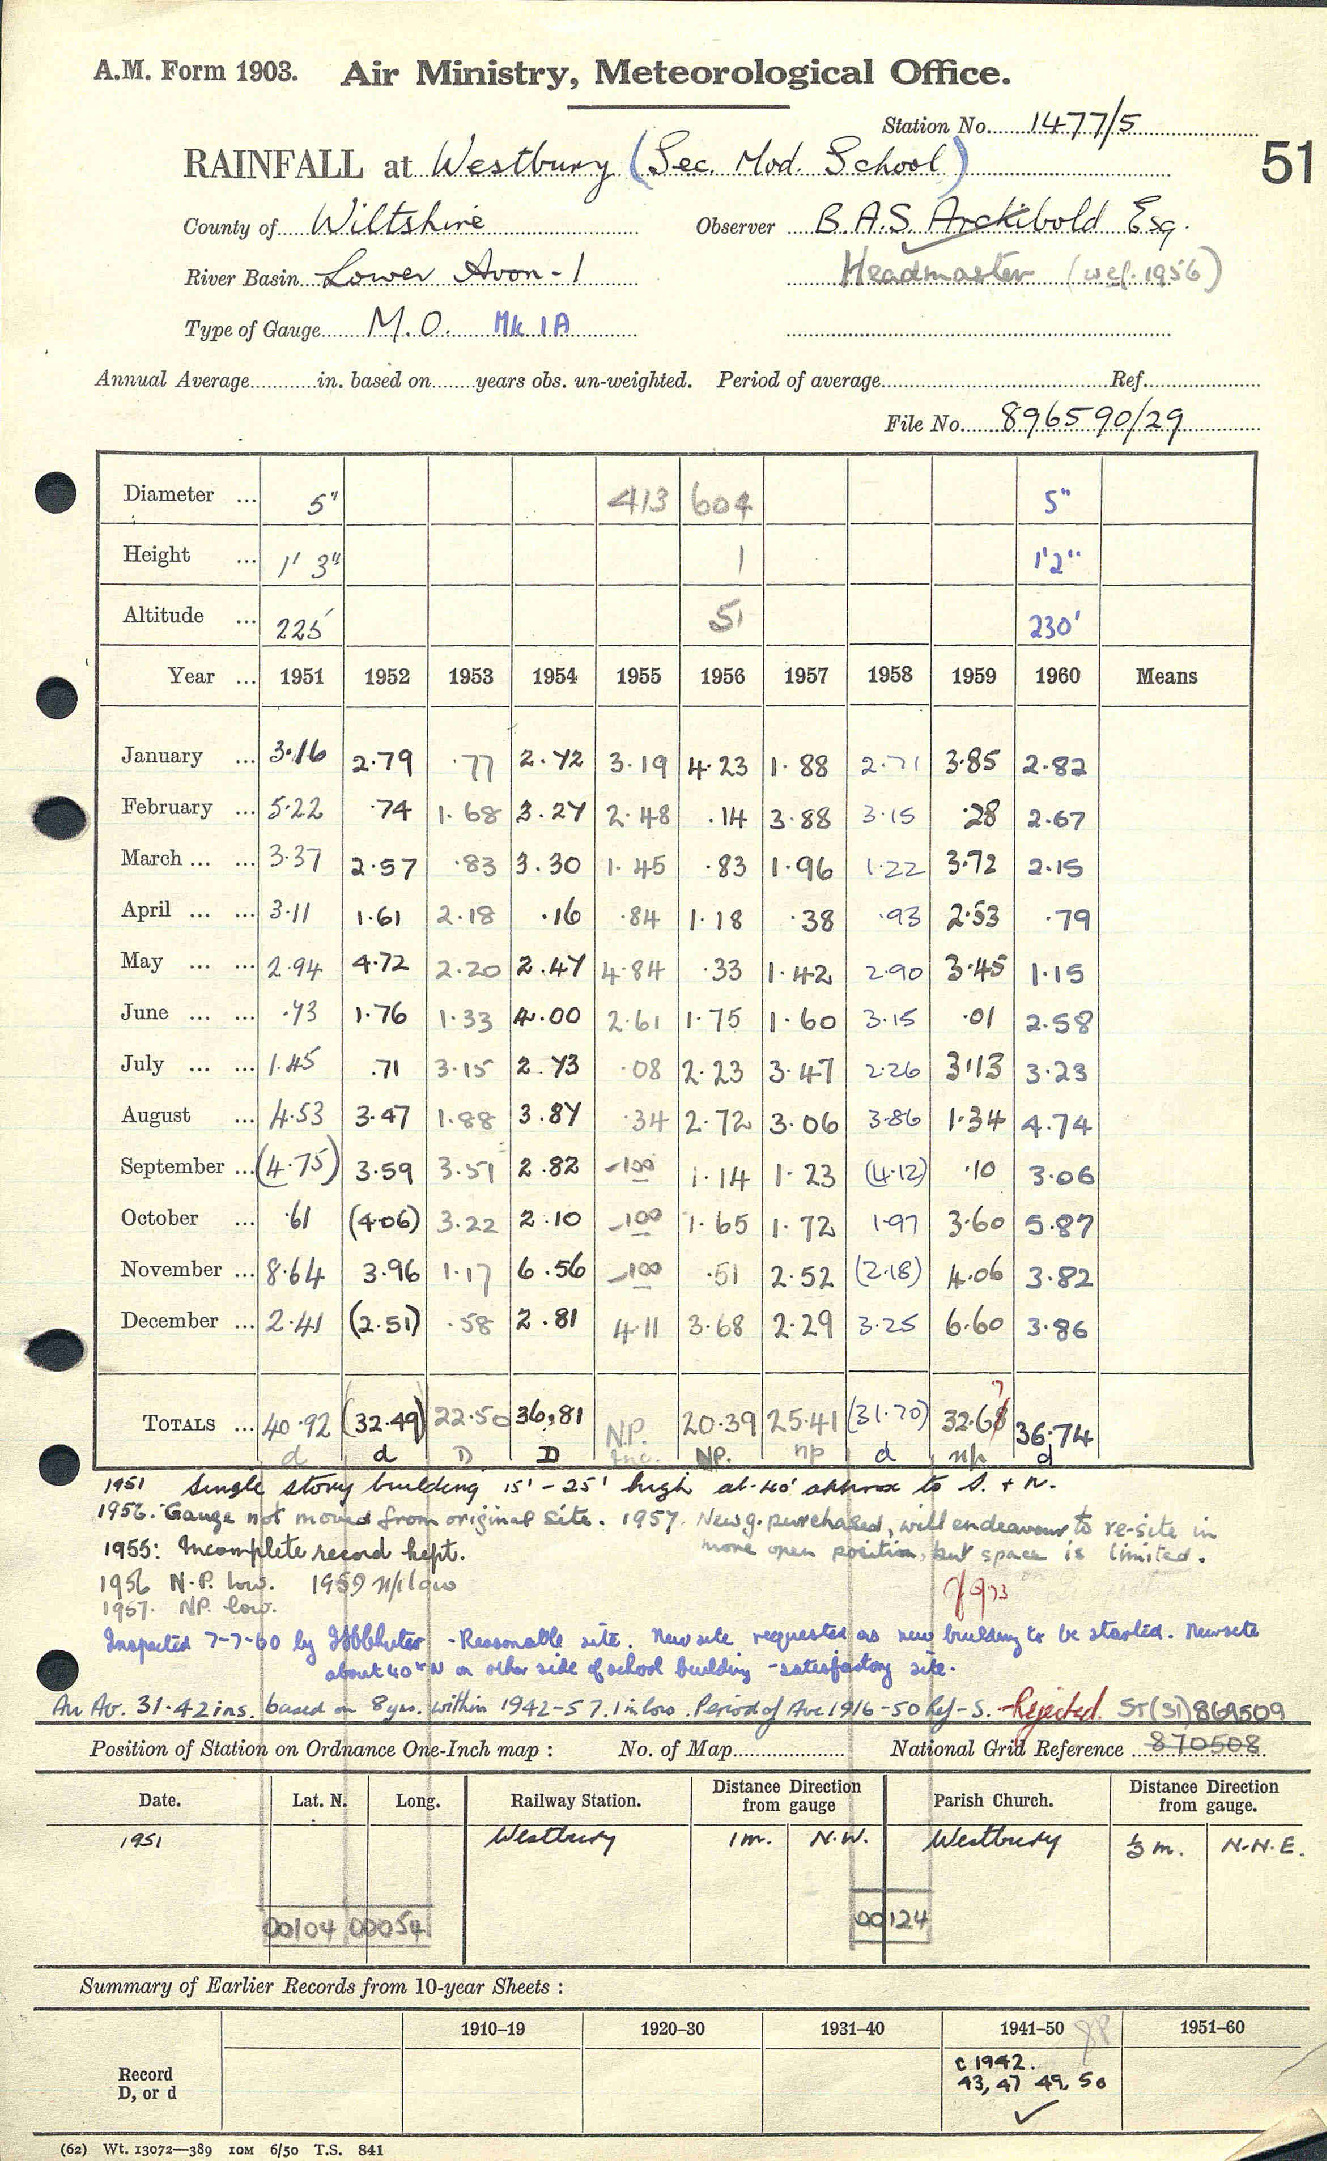 A.M. Form 1903. Air Ministry, Meteorological Office.
Station No. 1477/5
51
RAINFALL at Westbury (Sec. Mod. School)
County of Wiltshire Observer B.A.S. Archibold Esq.
River Basin Lower Avon-1 Headmaster (wef. 1956)
Type of Gauge M.O. Mk 1A
Annual Average in. based on years obs. un-weighted. Period of average Ref.
File No. 896590/29
Diameter ... 5" 413 604 5"
Height ... 1' 3" 1 1'2"
Altitude ... 225' 51 230'
Year ... 1951 1952 1953 1954 1955 1956 1957 1958 1959 1960 Means
January ... 3.16 2.79 .77 2.72 3.19 4.23 1.88 2.71 3.85 2.82
February ... 5.22 .74 1.68 3.27 2.48 .14 3.88 3.15 .28 2.67
March ... ... 3.37 2.57 .83 3.30 1.45 .83 1.96 1.22 3.72 2.15
April ... ... 3.11 1.61 2.18 .16 .84 1.18 .38 .93 2.53 .79
May ... ... 2.94 4.72 2.20 2.47 4.84 .33 1.42 2.90 3.45 1.15
June ... ... .73 1.76 1.33 4.00 2.61 1.75 1.60 3.15 .01 2.58
July ... ... 1.45 .71 3.15 2.73 .08 2.23 3.47 2.26 3.13 3.23
August ... 4.53 3.47 1.88 3.87 .34 2.72 3.06 3.86 1.34 4.74
September ... (4.75) 3.59 3.51 2.82 -100 1.14 1.23 (4.12) .10 3.06
October ... .61 (4.06) 3.22 2.10 -100 1.65 1.72 1.97 3.60 5.87
November ... 8.64 3.96 1.17 6.56 -100 .51 2.52 (2.18) 4.06 3.82
December ... 2.41 (2.51) .58 2.81 4.11 3.68 2.29 3.25 6.60 3.86
7
TOTALS ... 40.92 (32.49) 22.50 36.81 N.P. 20.39 25.41 (31.70) 32.68 36.74
d d D D Inc. NP. np d n/p d
1951 Single story building 15' - 25' high at 40' approx to S. + N.
1956. Gauge not moved from original site. 1957. New g. purchased, will endeavour to re-site in
more open position, but space is limited.
1955: Incomplete record kept.
1956 N.P. low. 1959 n/p low
1957. NP. low.
Inspected 7-7-60 by - Reasonable site. New site requested as new building to be started. New site
about 40 N on other side of school building - satisfactory site.
An Av. 31.42 ins. based on 8 yrs. within 1942-57. Period of Ave 1916-50 Ref-S. Rejected. ST(31)869509
Position of Station on Ordnance One-Inch map : No. of Map National Grid Reference 870508
Date. Lat. N. Long. Railway Station. Distance from gauge Direction Parish Church. Distance from gauge. Direction
1951 Westbury 1m. N.W. Westbury ⅓ m. N.N.E.
00104 00054 00124
Summary of Earlier Records from 10-year Sheets :
1910-19 1920-30 1931-40 1941-50 1951-60
Record D, or d
c 1942.
43, 47 49, 50
(62) Wt. 13072—389 10M 6/50 T.S. 841